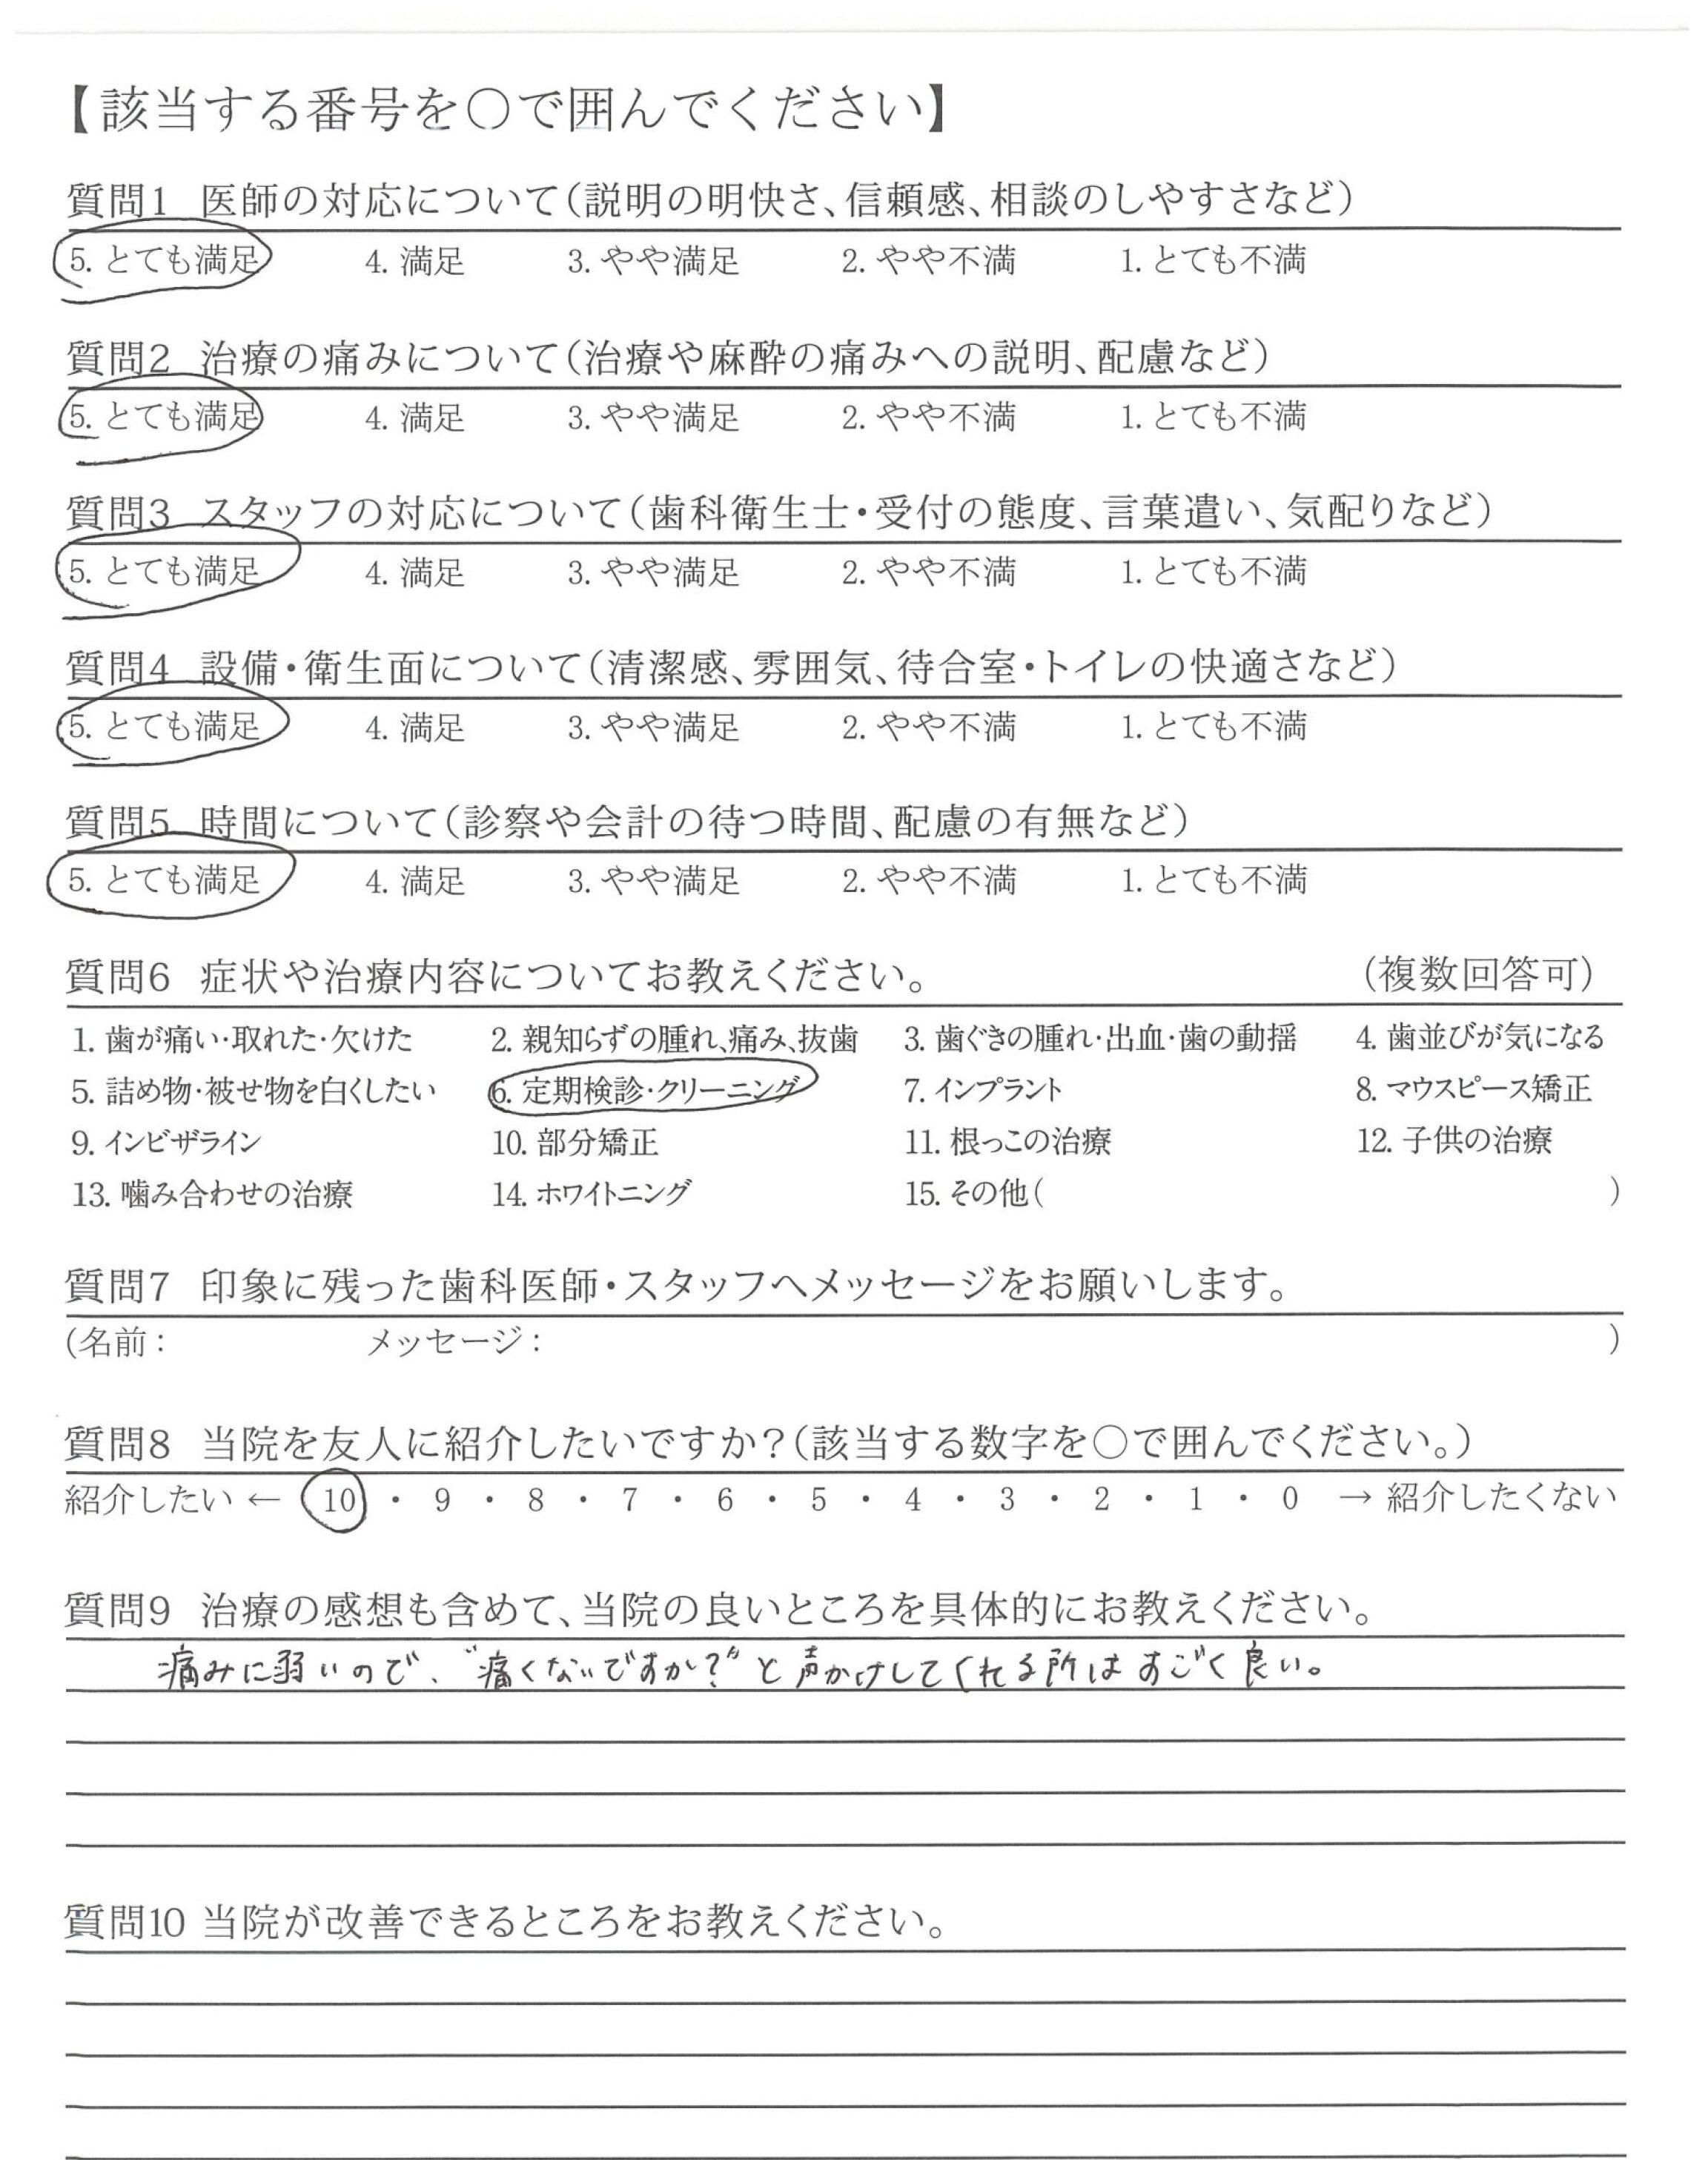 【該当する番号を○で囲んでください】
質問1 医師の対応について(説明の明快さ、信頼感、相談のしやすさなど)
5. とても満足 4. 満足 3. やや満足 2. やや不満 1. とても不満
質問2 治療の痛みについて(治療や麻酔の痛みへの説明、配慮など)
5. とても満足 4. 満足 3. やや満足 2. やや不満 1. とても不満
質問3 スタッフの対応について(歯科衛生士・受付の態度、言葉遣い、気配りなど)
5. とても満足 4. 満足 3. やや満足 2. やや不満 1. とても不満
質問4 設備・衛生面について(清潔感、雰囲気、待合室・トイレの快適さなど)
5. とても満足 4. 満足 3. やや満足 2. やや不満 1. とても不満
質問5 時間について(診察や会計の待つ時間、配慮の有無など)
5. とても満足 4. 満足 3. やや満足 2. やや不満 1. とても不満
質問6 症状や治療内容についてお教えください。 (複数回答可)
1. 歯が痛い・取れた・欠けた 2. 親知らずの腫れ、痛み、抜歯 3. 歯ぐきの腫れ・出血・歯の動揺 4. 歯並びが気になる
5. 詰め物・被せ物を白くしたい 6. 定期検診・クリーニング 7. インプラント 8. マウスピース矯正
9. インビザライン 10. 部分矯正 11. 根っこの治療 12. 子供の治療
13. 噛み合わせの治療 14. ホワイトニング 15. その他( )
質問7 印象に残った歯科医師・スタッフへメッセージをお願いします。
(名前: メッセージ: )
質問8 当院を友人に紹介したいですか?(該当する数字を○で囲んでください。)
紹介したい ← 10 ・ 9 ・ 8 ・ 7 ・ 6 ・ 5 ・ 4 ・ 3 ・ 2 ・ 1 ・ 0 → 紹介したくない
質問9 治療の感想も含めて、当院の良いところを具体的にお教えください。
痛みに弱いので、“痛くないですか?”と声かけしてくれる所はすごく良い。
質問10 当院が改善できるところをお教えください。